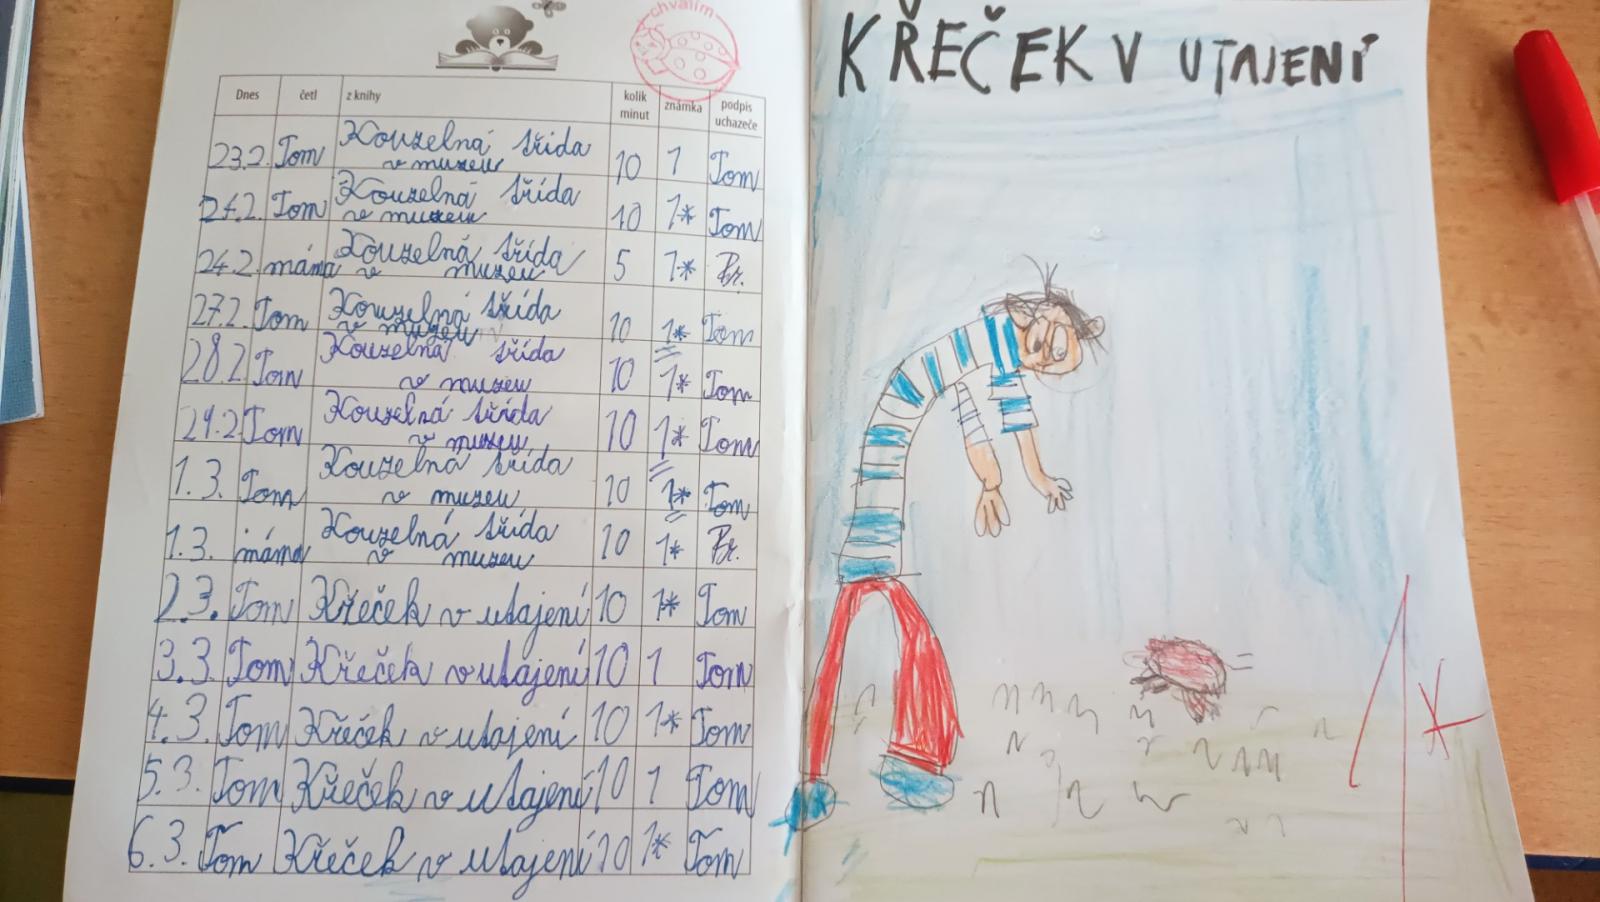 chválím
Dnes četl z knihy kolik minut známka podpis uchazeče
23.2. Tom Kouzelná třída v muzeu 10 1 Tom
24.2. Tom Kouzelná třída v muzeu 10 1* Tom
24.2. máma Kouzelná třída v muzeu 5 1* Br.
27.2. Tom Kouzelná třída v muzeu 10 1* Tom
28.2. Tom Kouzelná třída v muzeu 10 1* Tom
29.2. Tom Kouzelná třída v muzeu 10 1* Tom
1.3. Tom Kouzelná třída v muzeu 10 1* Tom
1.3. máma Kouzelná třída v muzeu 10 1* Br.
2.3. Tom Křeček v utajení 10 1* Tom
3.3. Tom Křeček v utajení 10 1 Tom
4.3. Tom Křeček v utajení 10 1* Tom
5.3. Tom Křeček v utajení 10 1 Tom
6.3. Tom Křeček v utajení 10 1* Tom
KŘEČEK V UTAJENÍ
1*